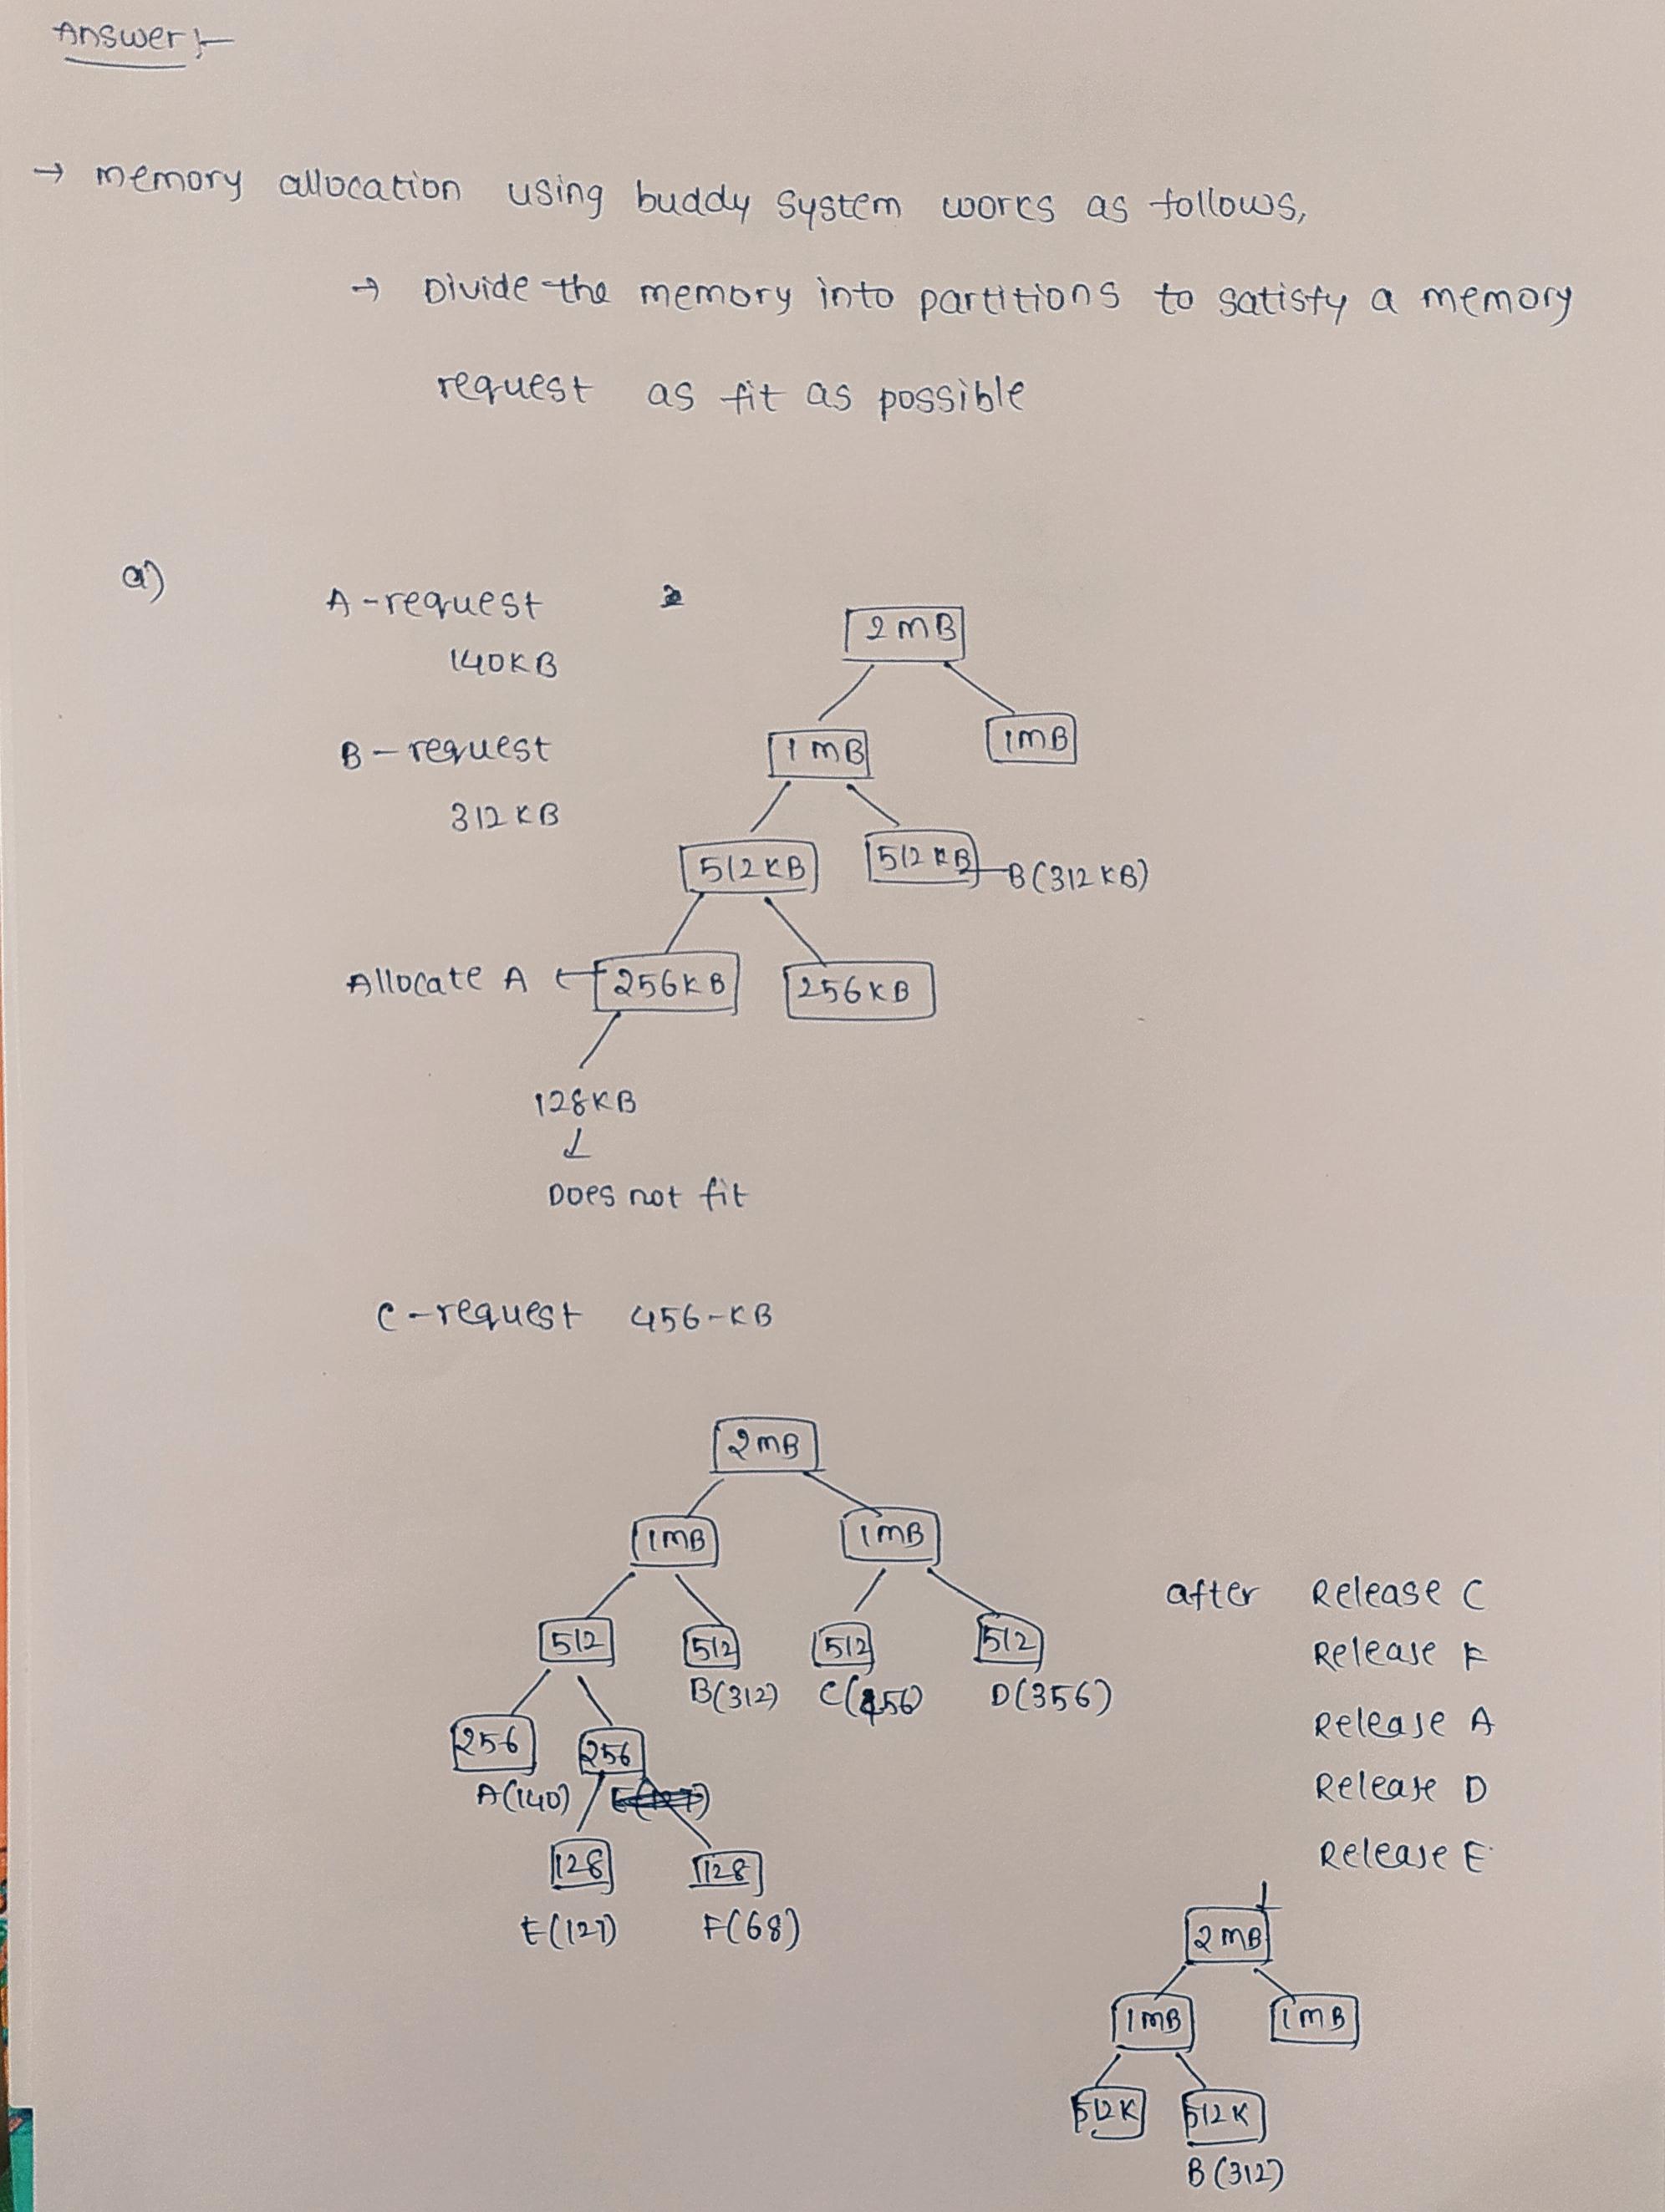 Answer :-
→ memory allocation using buddy system works as follows,
→ Divide the memory into partitions to satisfy a memory
request as fit as possible
a)
A - request
140KB
B - request
312 KB
2 MB
1 MB
1MB
512KB
512 KB
B(312 KB)
Allocate A
256KB
256KB
128KB
↓
Does not fit
C - request 456-KB
2MB
1MB
1MB
512
512
512
512
B(312)
C(456)
D(356)
256
256
A(140)
128
128
E(127)
F(68)
after Release C
Release F
Release A
Release D
Release E
2 MB
1 MB
1MB
512K
512K
B(312)